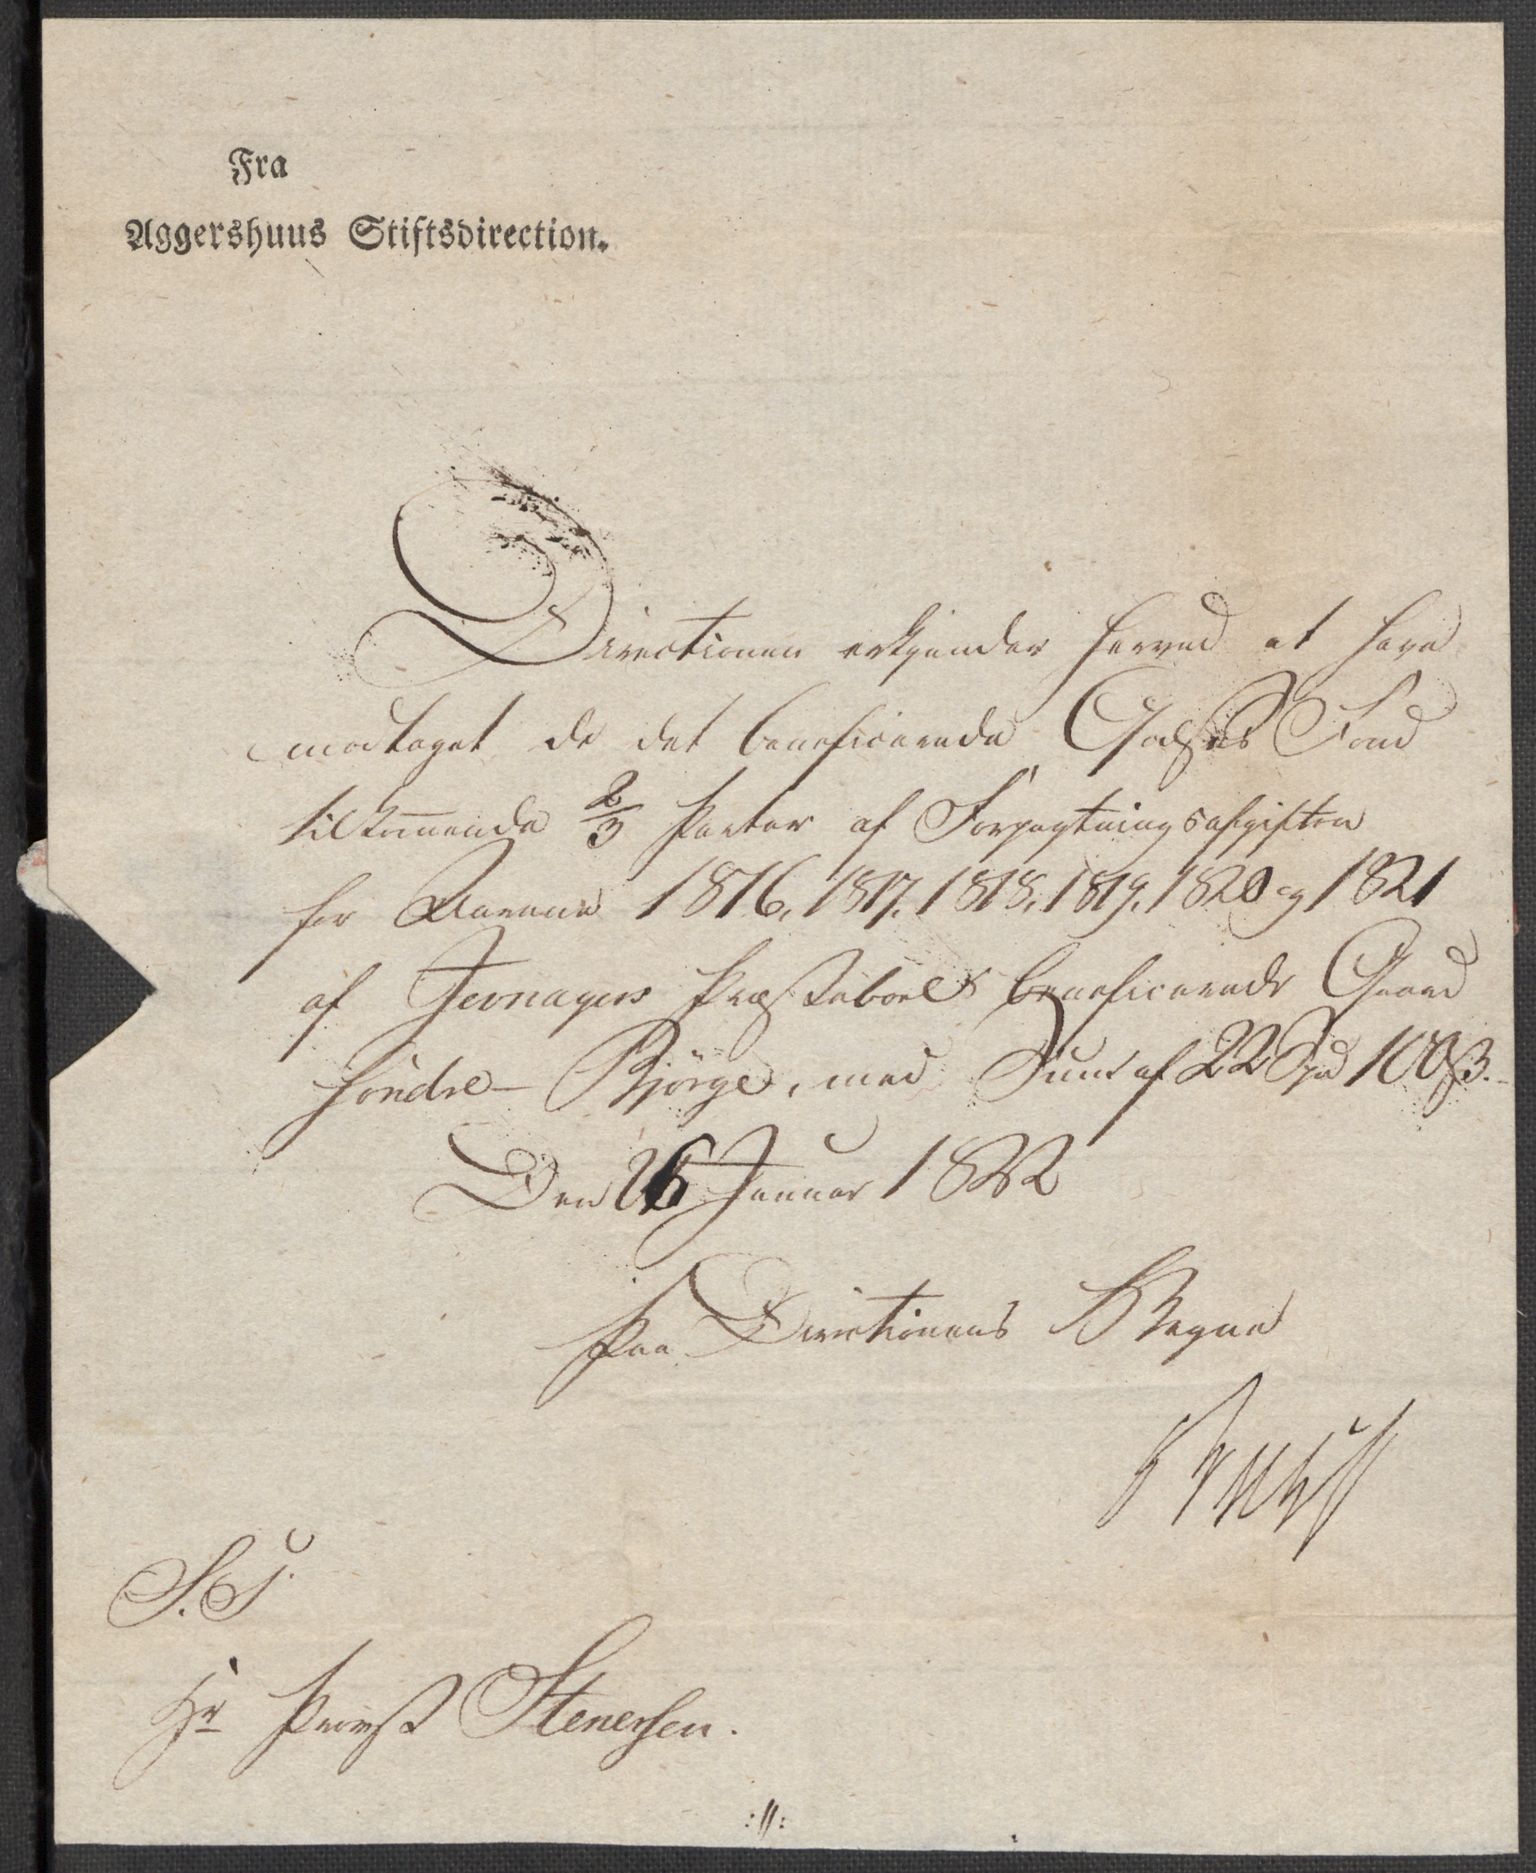 Fra
Aggershuus Stiftsdirection.
Directionen erkjender herved at have
modtaget de det beneficerede Godses Fond
tilkom̅ende 2/3 Parter af Forpagtningsafgiften
for Aarene 1816, 1817, 1818, 1819, 1820 og 1821
af Jevnagers Præsteboels beneficerede Gaard
söndre Björge, med Sum af 22 Spd 100 ß.
Den 26 Januar 1822
Paa Directionens Vegne
S. T.
Hr Provst Stenersen.
:||: